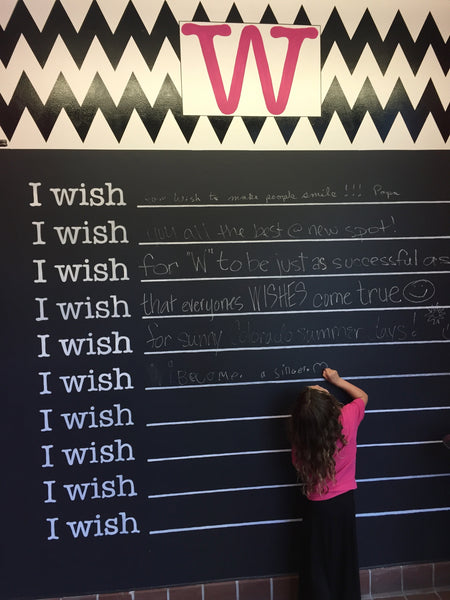 W
I wish your wish to make people smile!!! Papa
I wish you all the best @ new spot!
I wish for "W" to be just as successful as
I wish that everyones WISHES come true
I wish for sunny Colorado summer days!
I wish I Become a singer
I wish
I wish
I wish
I wish